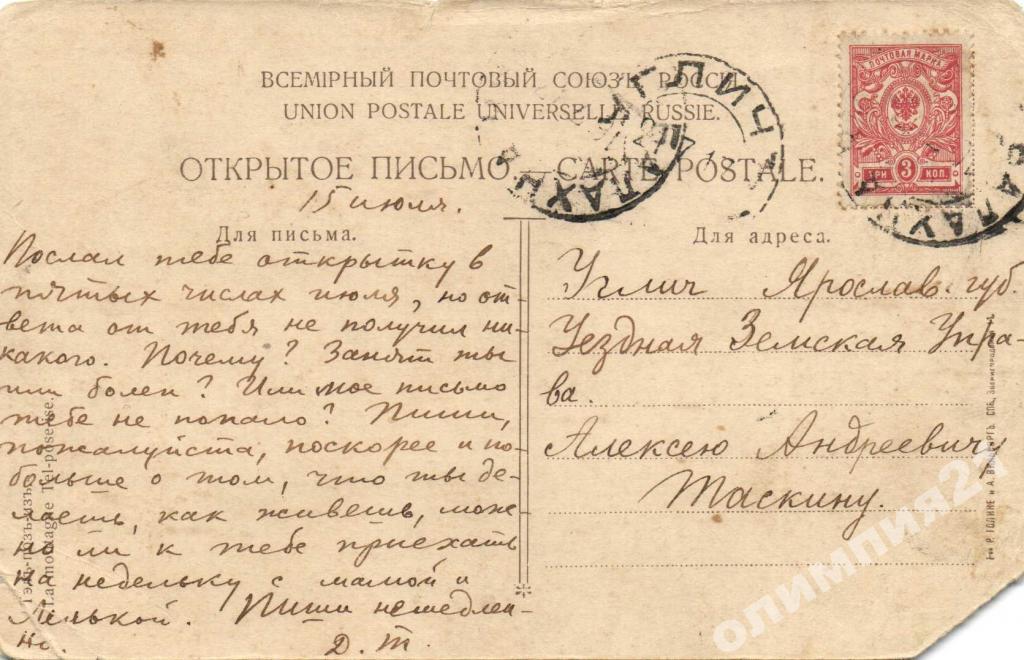 ВСЕМІРНЫЙ ПОЧТОВЫЙ СОЮЗЪ РОССІЯ
UNION POSTALE UNIVERSELLE RUSSIE.
ОТКРЫТОЕ ПИСЬМО — CARTE POSTALE.
ПОЧТОВАЯ МАРКА
3
ТРИ КОП.
УГЛИЧ
БАЛАХНА
БАЛАХНА
15 июля.
Для письма.
Послал тебе открытку в
пятых числах июля, но от
вета от тебя не получил ни-
какого. Почему? Занят ты
или болен? Или мое письмо
тебе не попало? Пиши,
пожалуйста, поскорее и по-
больше о том, что ты де-
лаешь, как живешь, мож-
но ли к тебе приехать
на недельку с мамой и
Лелькой. Пиши немедлен-
но. Д. Т.
Для адреса.
Углич Ярослав. губ.
Уездная Земская Упра-
ва.
Алексею Андреевичу
Таскину.
Тэль-позъ-изъ.
La montagne Tel-pose-ise.
Р. ГОЛИКЕ и А. ВИЛЬБОРГЪ. СПБ.
олимпия2а